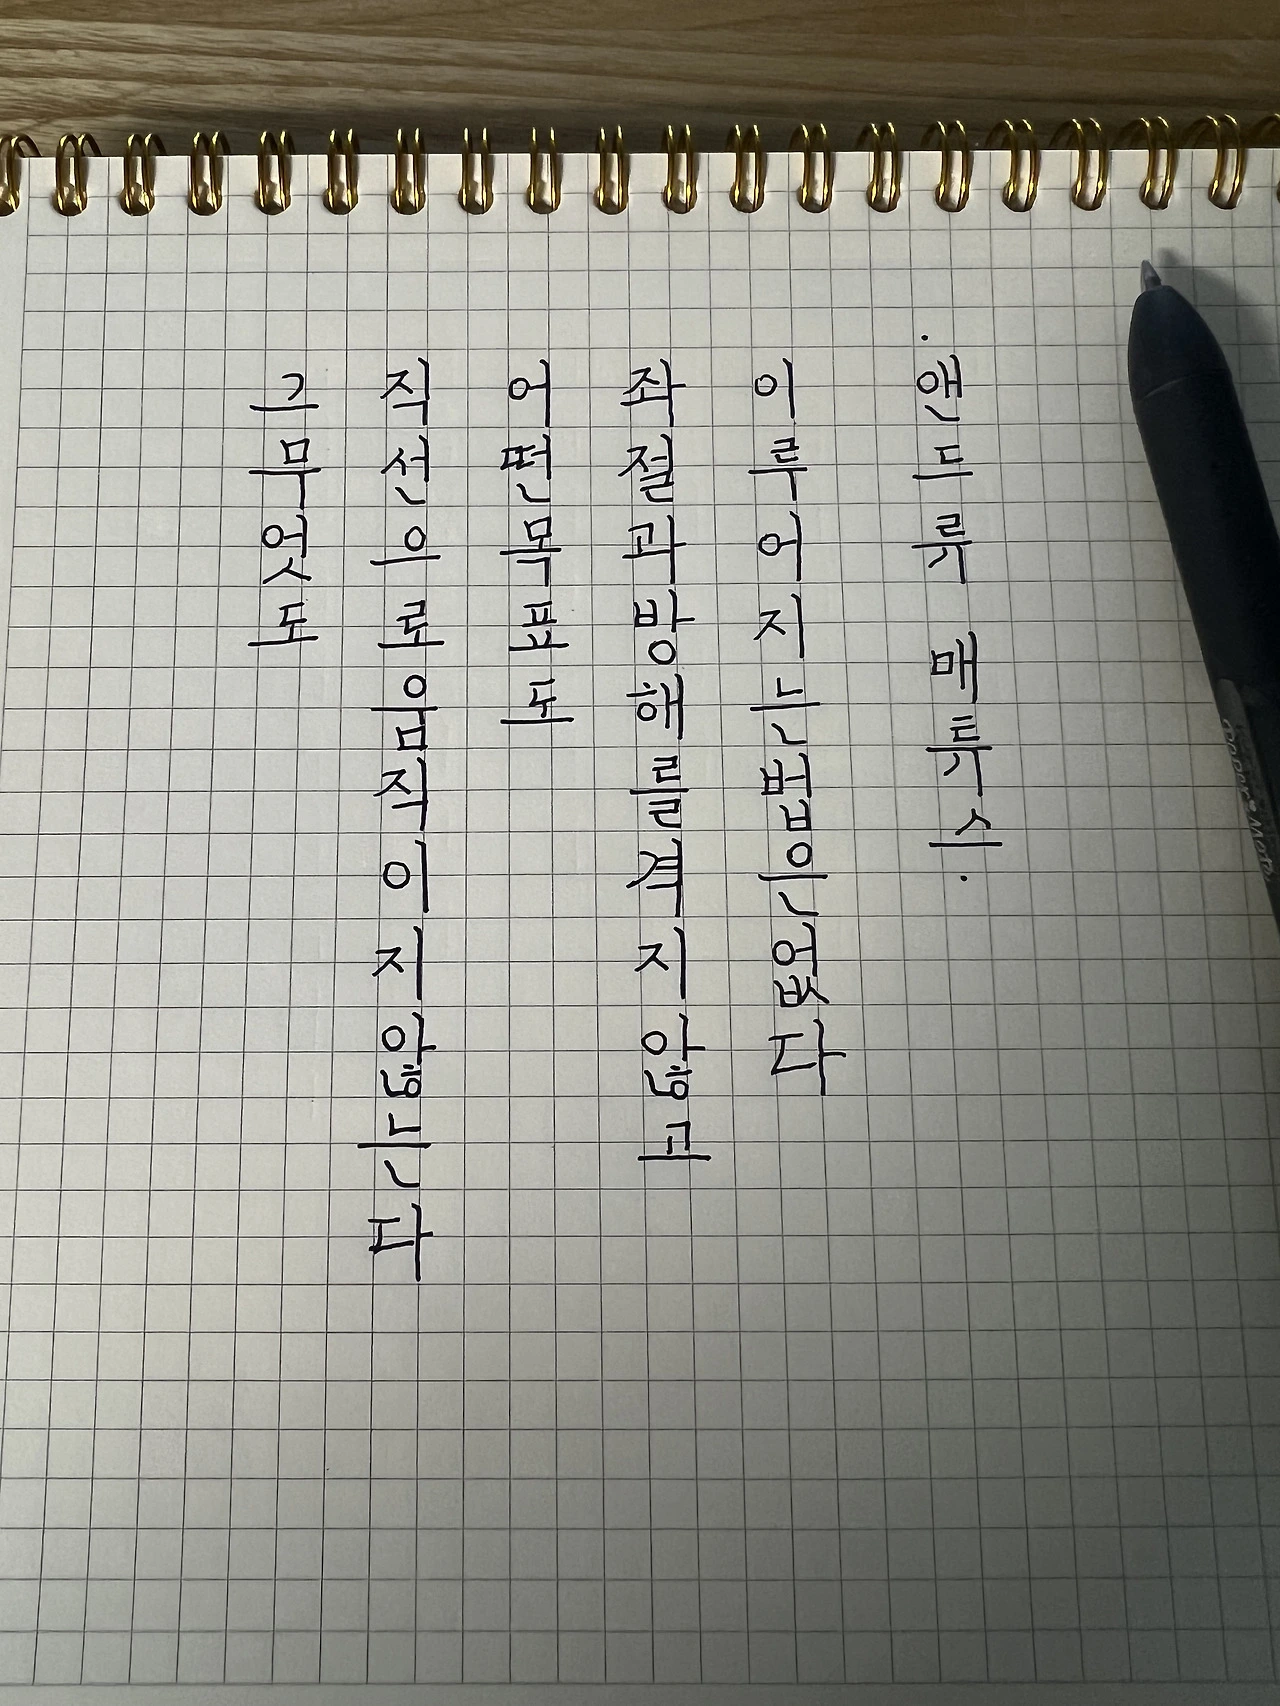 그무엇도
직선으로움직이지않는다
어떤목표도
좌절과방해를겪지않고
이루어지는법은없다
.앤드류 매튜스.